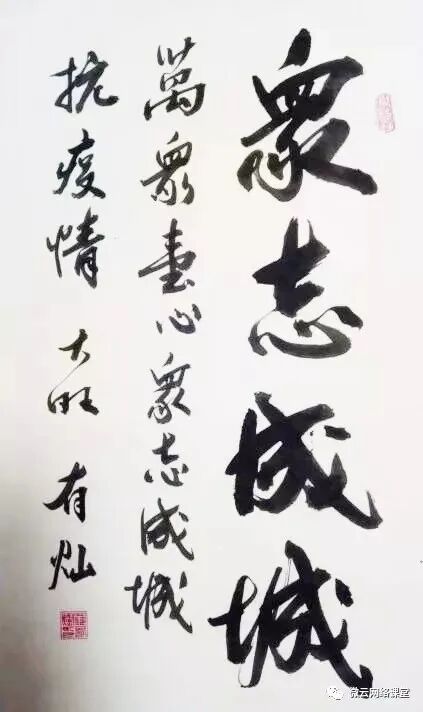 衆志成城
萬衆壹心衆志成城
抗疫情 大旺 有灿
微云网络课堂